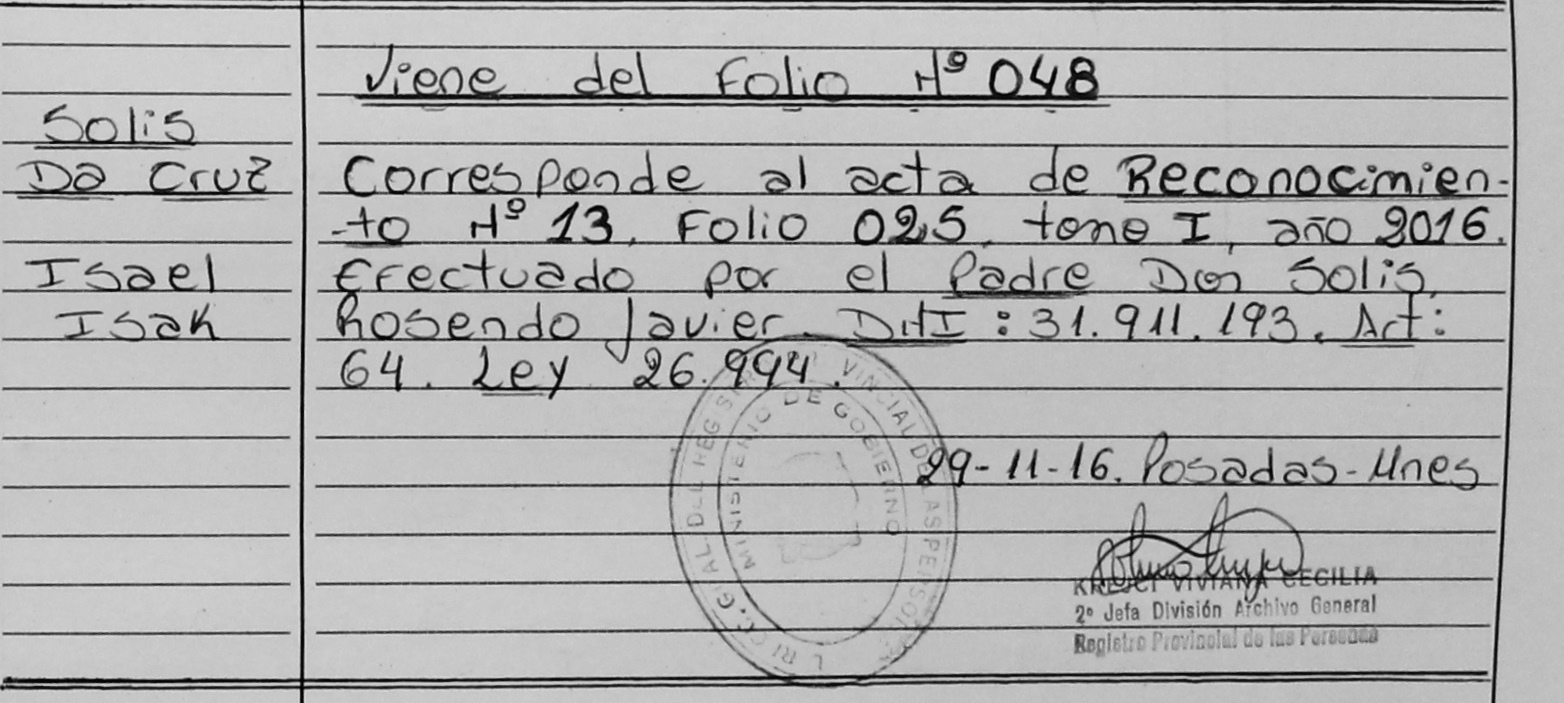 Viene del Folio Nº 048
Solis
Da Cruz
Isael
Isak
Corresponde al acta de Reconocimien-
-to Nº 13, Folio 025, tomo I, año 2016.
Efectuado por el Padre Don Solis,
Rosendo Javier. DNI: 31.911.193. Art:
64. Ley 26.994.
29-11-16. Posadas-Mnes
VIVIANA CECILIA
2º Jefa División Archivo General
Registro Provincial de las Personas
GRAL. DEL REGISTRO PROVINCIAL DE LAS PERSONAS
MINISTERIO DE GOBIERNO